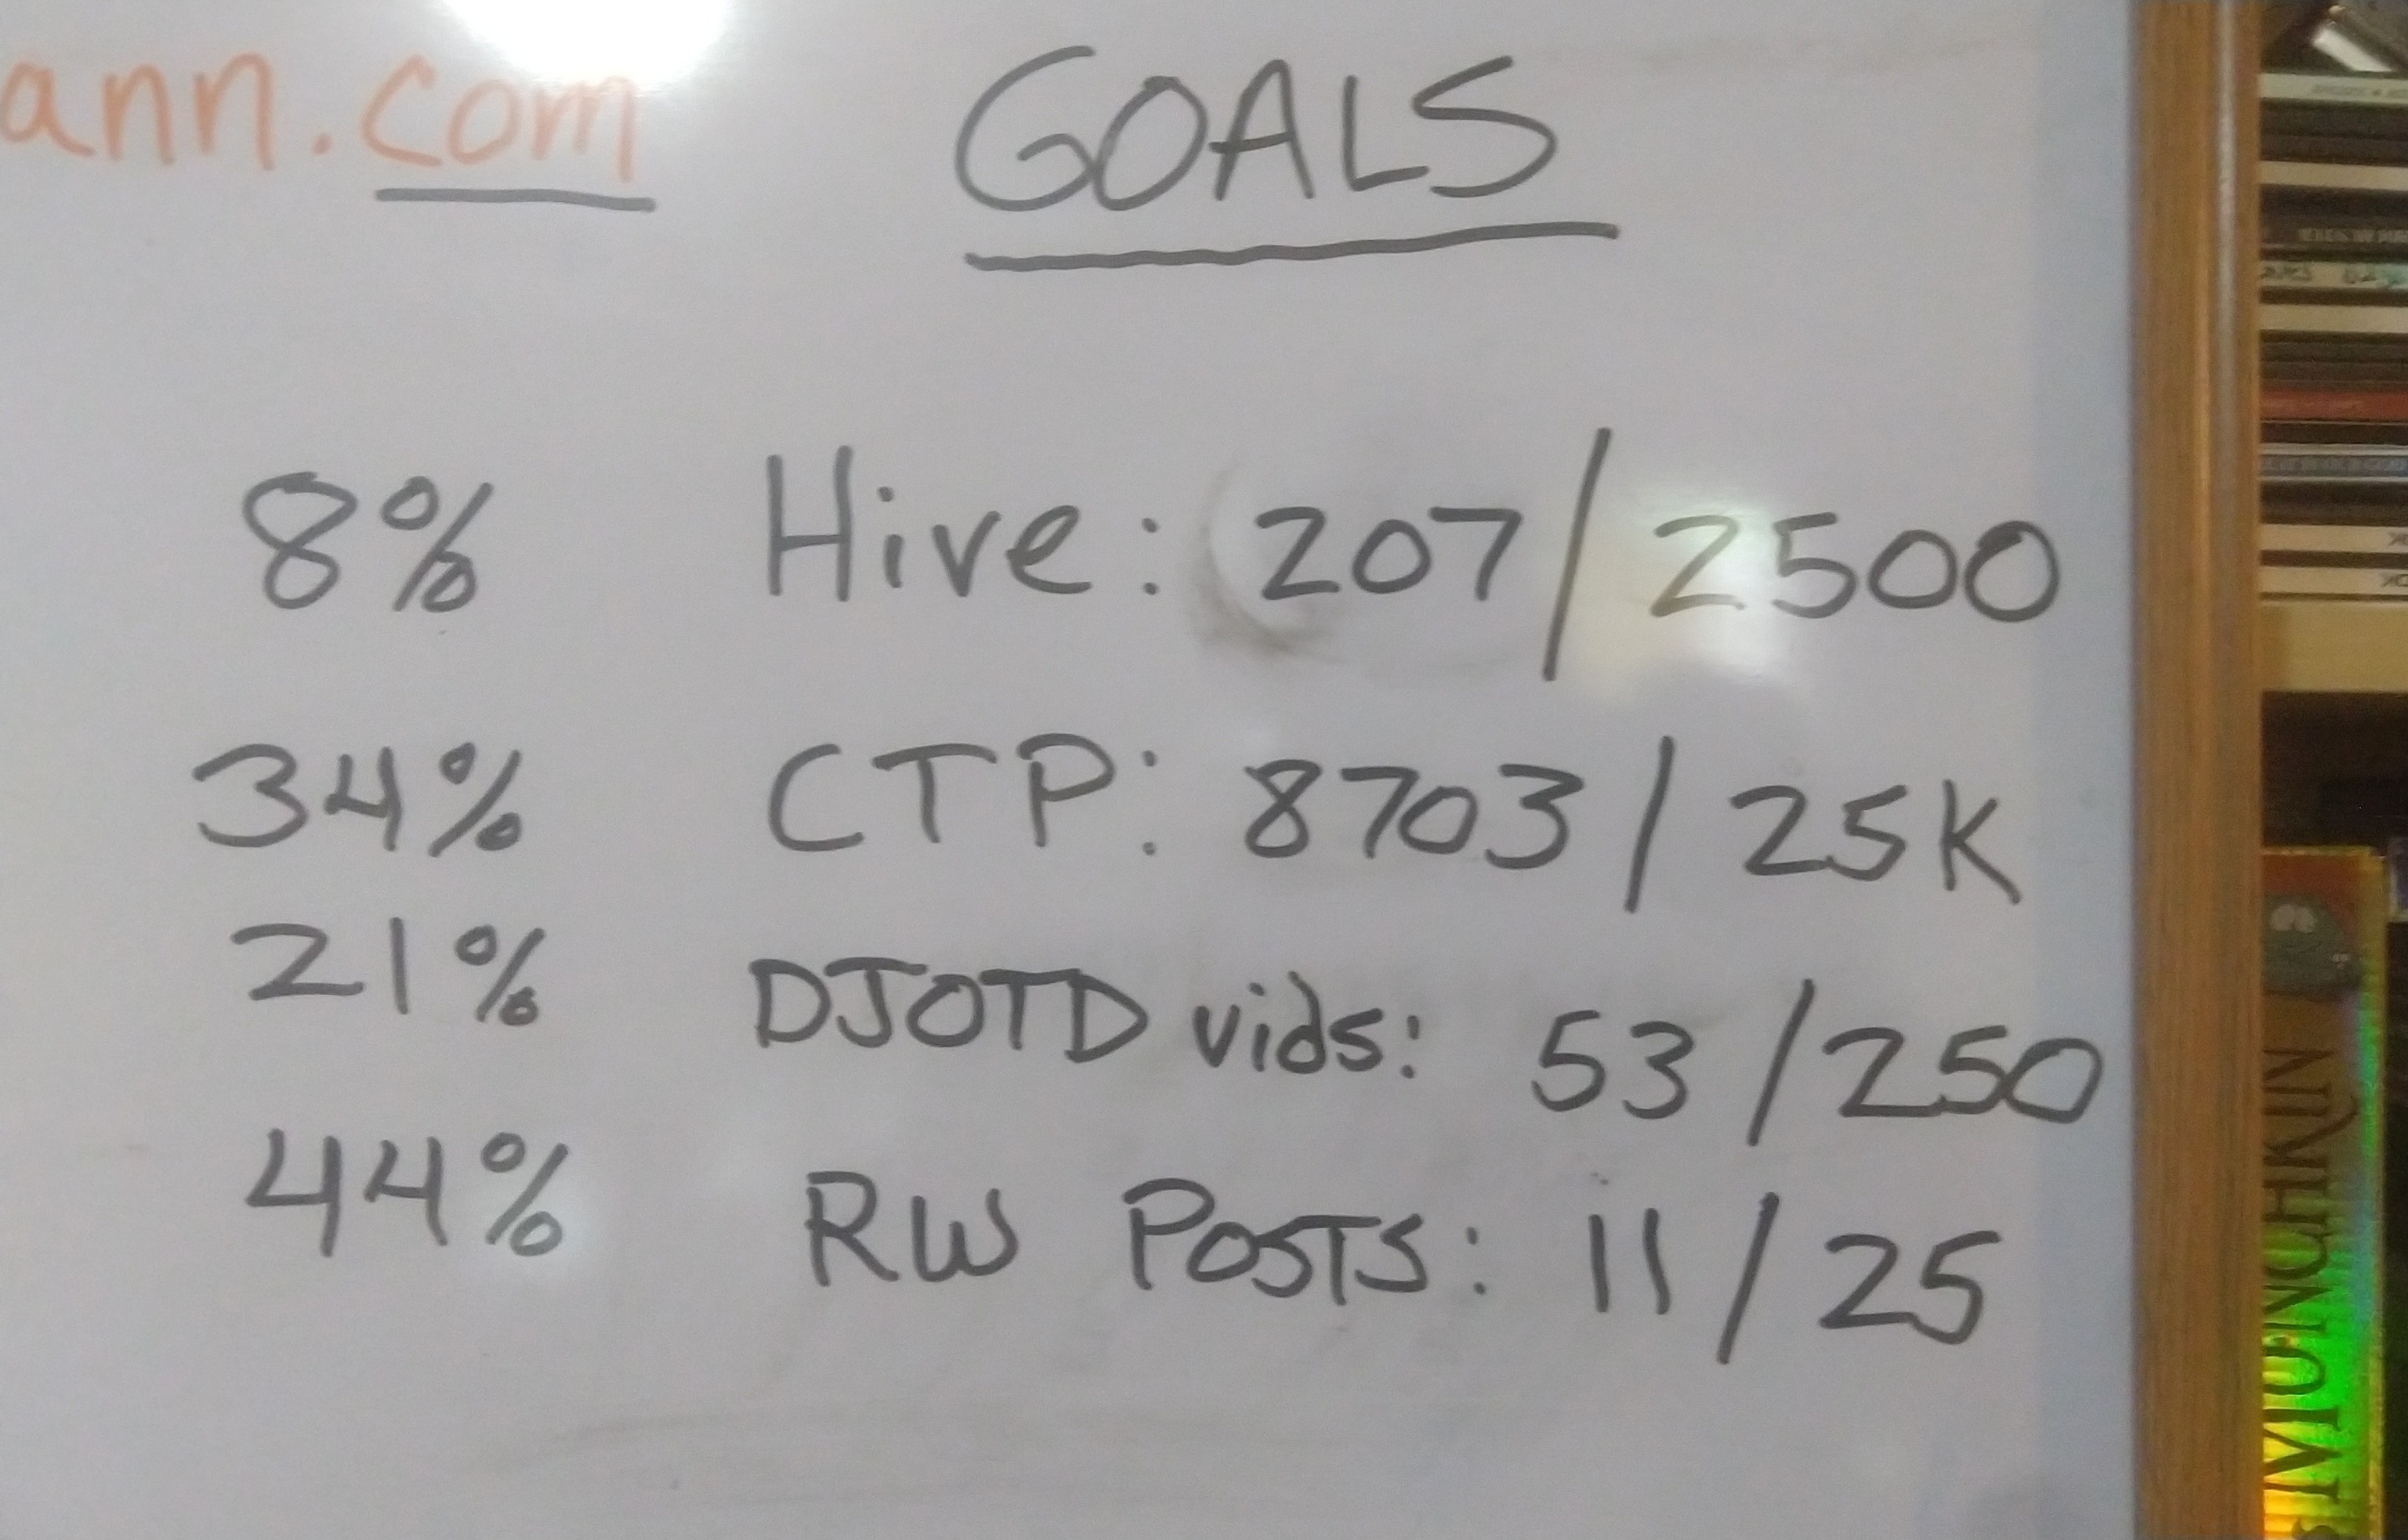 ann.com
GOALS
8% Hive: 207/2500
34% CTP: 8703/25K
21% DJOTD vids: 53/250
44% RW POSTS: 11/25
MUNCHKIN